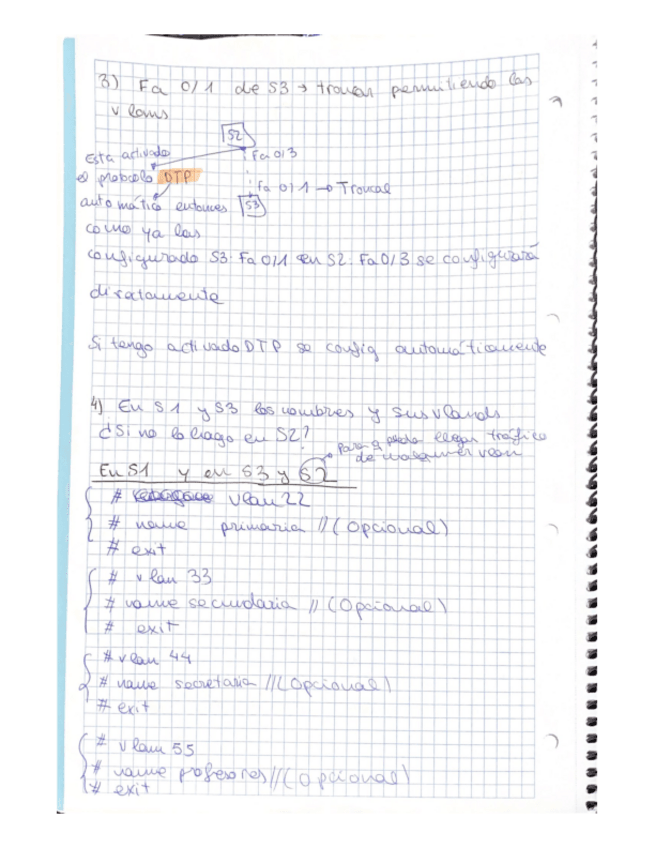 3) Fa 0/1 de S3 → troncal permitiendo las
vlans
S2
Fa 0/3
Esta activado
el protocolo DTP
Fa 0/1 → Troncal
automático entonces
S3
como ya las
configurado S3. Fa 0/1 en S2. Fa 0/3 se configurará
diratamente
Si tengo activado DTP se config automáticamente
4) En S1 y S3 los nombres y sus vlands
¿Si no lo hago en S2?
para q pueda llegar tráfico
de cualquier vlan
En S1 y en S3 y S2
# vlan 22
# name primaria // (Opcional)
# exit
# vlan 33
# name secundaria // (Opcional)
# exit
# vlan 44
# name secretaria // (Opcional)
# exit
# vlan 55
# name profesores // (Opcional)
# exit